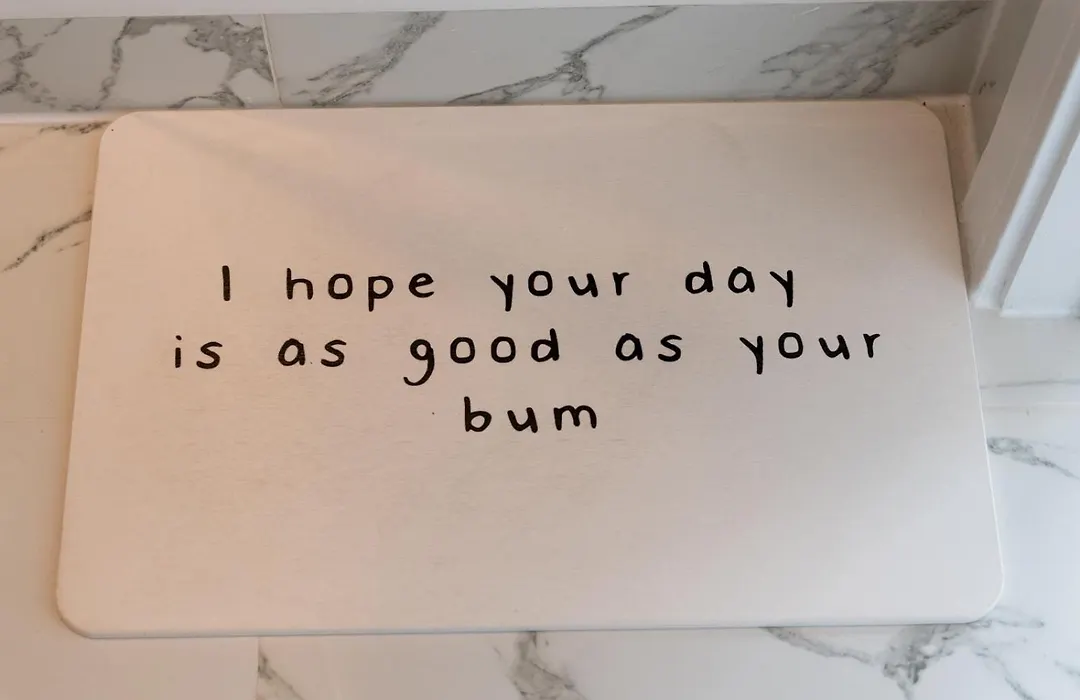 I hope your day
is as good as your
bum